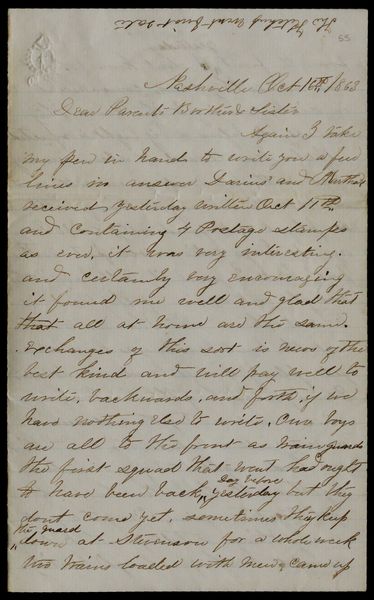 55
Nashville Oct 16th /1863
Dear Parents Borther & Sister
Again I take
my pen in hand to write you a few
lines in answer Darius and
received yesterday written Oct 11th
and containing 4 Postage stamps
as ever, it was very interesting.
and certainly very encouraging
it found me well and glad that
that all at home are the same.
exchanges of this sort is news of the
best kind and will pay well to
write, backwards, and forth, if we
have nothing else to write, Our boys
are all to the front as train guards
the first squad that went had ought
day before
to have been back yesterday but they
dont come yet, sometimes they keep
the guard
down at Stevenson for a whole week
trains loaded with men came up